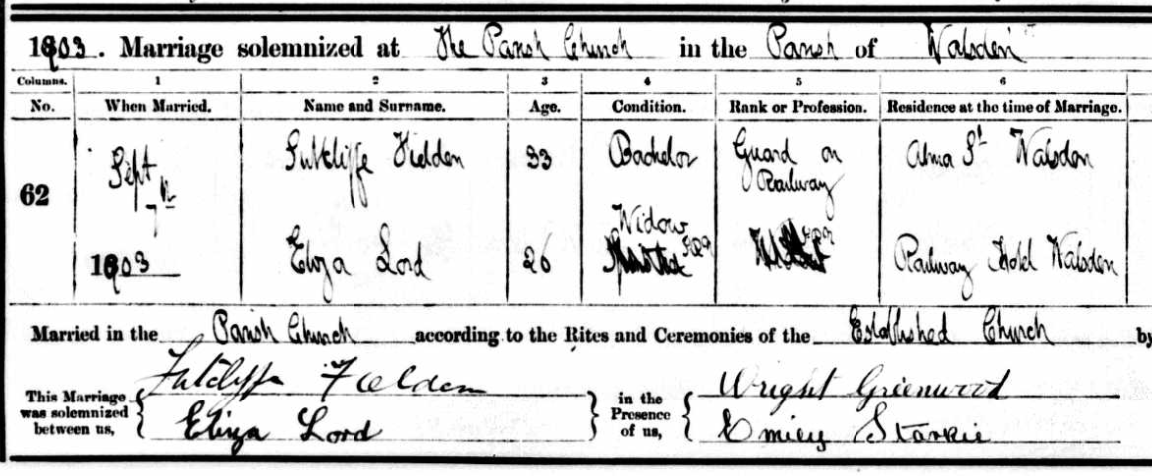 1903. Marriage solemnized at The Parish Church in the Parish of Walsden
Columns. 1 2 3 4 5 6
No. When Married. Name and Surname. Age. Condition. Rank or Profession. Residence at the time of Marriage.
62 Sept Sutcliffe Fielden 33 Bachelor Guard on Alma St Walsden
7th Railway
Widow
1903 Eliza Lord 26 Spinster Railway Hotel Walsden
Married in the Parish Church according to the Rites and Ceremonies of the Established Church by
This Marriage Sutcliffe Fielden in the Wright Greenwood
was solemnized Presence
between us, Eliza Lord of us, Emily Starkie